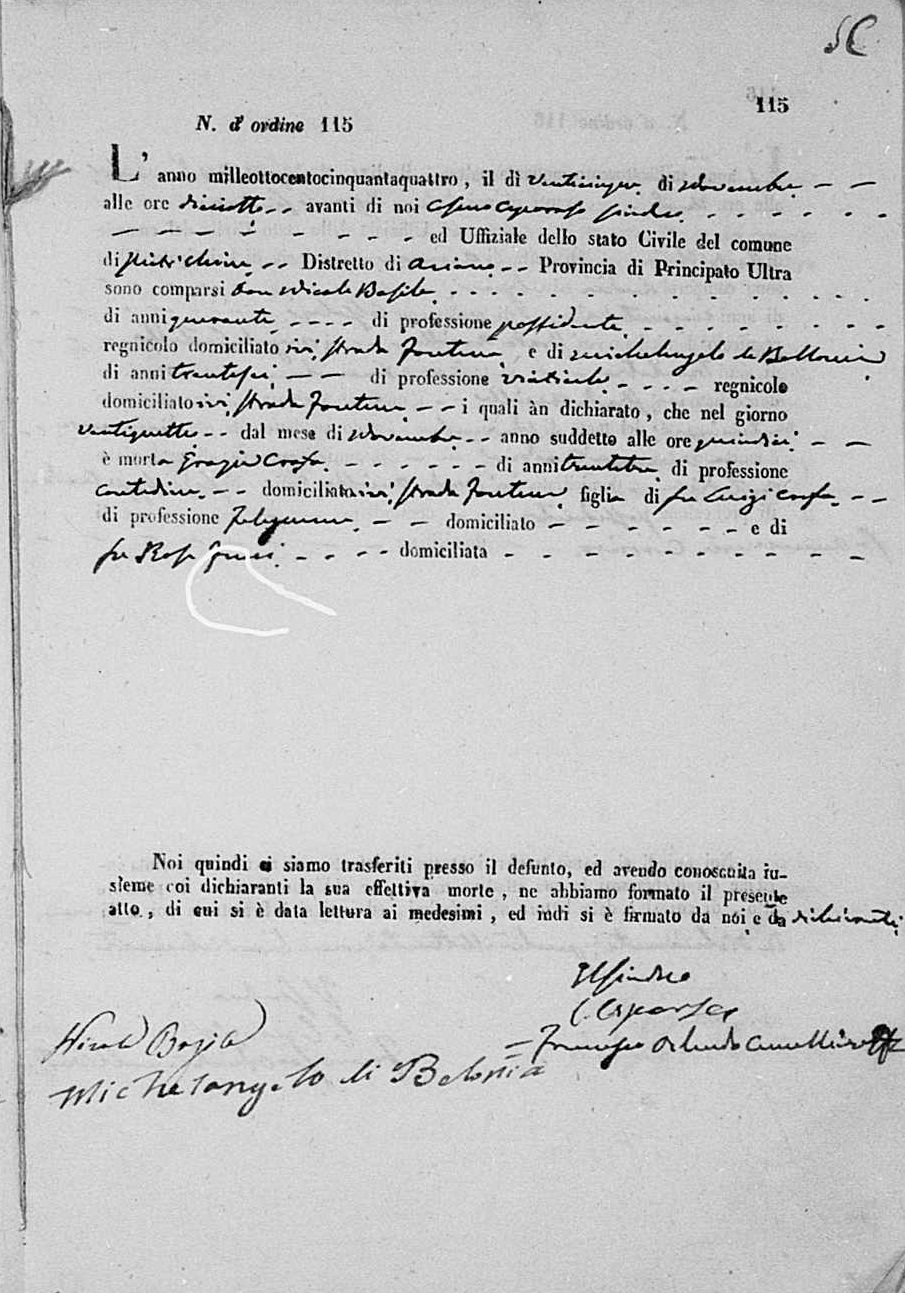 115
N. d' ordine 115
L' anno milleottocentocinquantaquattro, il di venticinque di Novembre
alle ore diciotto avanti di noi Sindaco
ed Uffiziale dello stato Civile del comune
di Distretto di Ariano Provincia di Principato Ultra
sono comparsi Don Nicola Basile
di anni quaranta di professione possidente
regnicolo domiciliato ivi strada Fontana e di Michelangelo di Bellonia
di anni trentasei di professione regnicolo
domiciliato ivi strada Fontana i quali àn dichiarato, che nel giorno
ventiquattro dal mese di Novembre anno suddetto alle ore quindici
è morta Grazia di anni trentatre di professione
contadina domiciliata ivi strada Fontana figlia di fu Luigi
di professione Falegname domiciliato e di
fu Rosa domiciliata
Noi quindi ci siamo trasferiti presso il defunto, ed avendo conosciuta in-
sieme coi dichiaranti la sua effettiva morte, ne abbiamo formato il presente
atto, di cui si è data lettura ai medesimi, ed indi si è firmato da noi e da dichiaranti
Il Sindaco
Nicola Basile
Michelangelo di Belonia